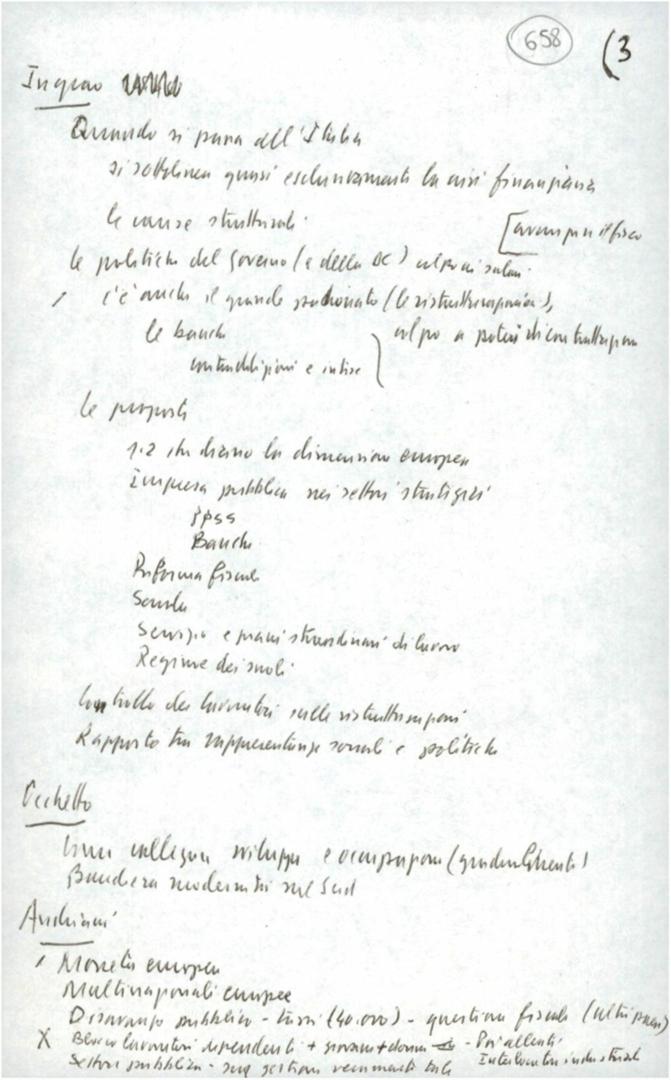 658 (3
Ingrao
Quando si parla dell'Italia
si sottolinea quasi esclusivamente la crisi finanziaria
le cause strutturali
le politiche del governo (e della DC) colpo ai salari
c'è anche il grande padronato (le ristrutturazioni),
le banche colpo a poteri di contrattazione
contraddizioni e intese
Le proposte
1.2 che diano la dimensione europea
Impresa pubblica nei settori strategici
PPSS
Banche
Riforma fiscale
Scuola
Servizio e piani straordinari di lavoro
Regime dei suoli
Controllo dei lavoratori sulle ristrutturazioni
Rapporto tra rappresentanze sociali e politiche
Occhetto
collegare sviluppo e occupazione
Bandiera modernità sul Sud
Andriani
Moneta europea
Multinazionali europee
Disavanzo pubblico - tassi (40.000) - questione fiscale (altri paesi)
X Blocco lavoratori dipendenti + giovani + donne - Poi alleati
Settore pubblico - Interlocutori industriali